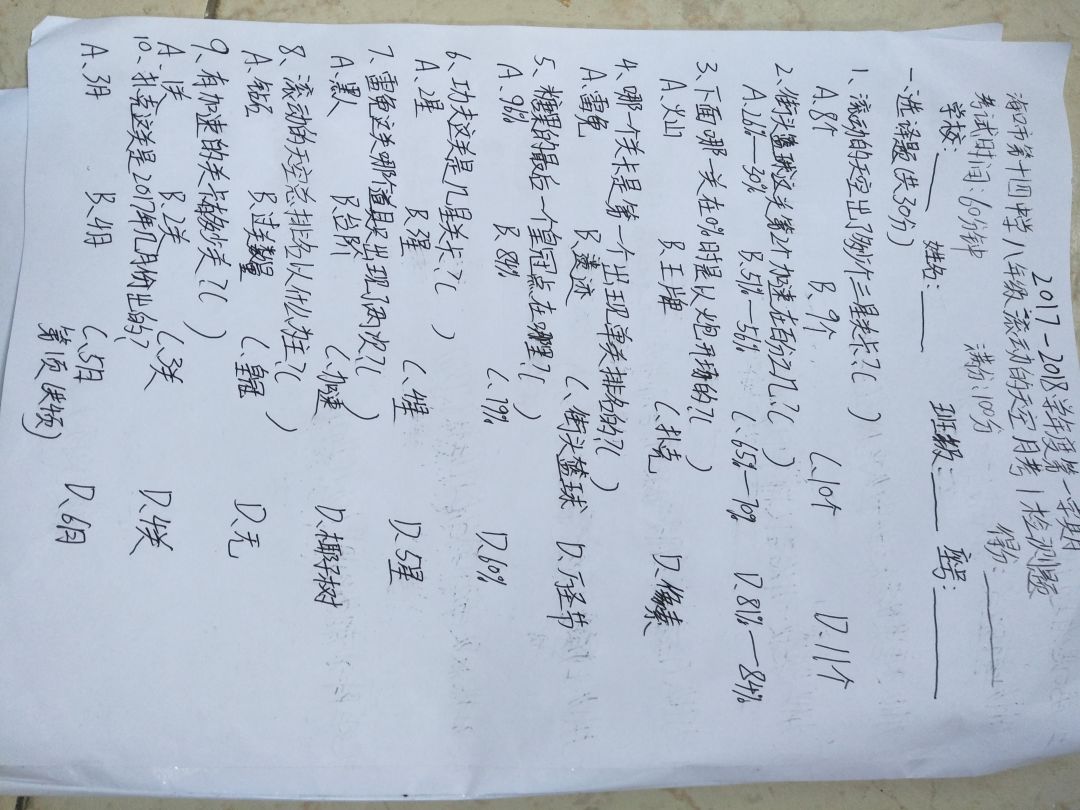 2017-2018学年度第一学期
海口市第十四中学八年级流动的天空月考1检测题
考试时间:60分钟 满分:100分 得分:
学校: 姓名: 班级: 座号:
一、选择题(共30分)
1、流动的天空出了多少个三星关卡?( )
A.8个 B.9个 C.10个 D.11个
2、街头篮球这关第2个加速在百分之几?( )
A.26%—30% B.51%—56% C.65%—70% D.81%—84%
3、下面哪一关在0%时是以炮开场的?( )
A.火山 B.王牌 C.扑克 D.像素
4、哪一个关卡是第一个出现单关排名的?( )
A.雷兔 B.遗迹 C.街头篮球 D.广圣节
5、糖果的最后一个皇冠点在哪里?( )
A.96% B.89% C.79% D.60%
6、功夫这关是几星关卡?( )
A.2星 B.3星 C.4星 D.5星
7、雷兔这关哪个道具只出现了两次?( )
A.黑人 B.台阶 C.加速 D.椰子树
8、流动的天空总排名以什么为主?( )
A.钻石 B.过关数量 C.皇冠 D.无
9、有加速的关卡有多少关?( )
A.1关 B.2关 C.3关 D.4关
10、扑克这关是2017年几月份出的?
A.3月 B.4月 C.5月 D.6月
第1页(共 页)